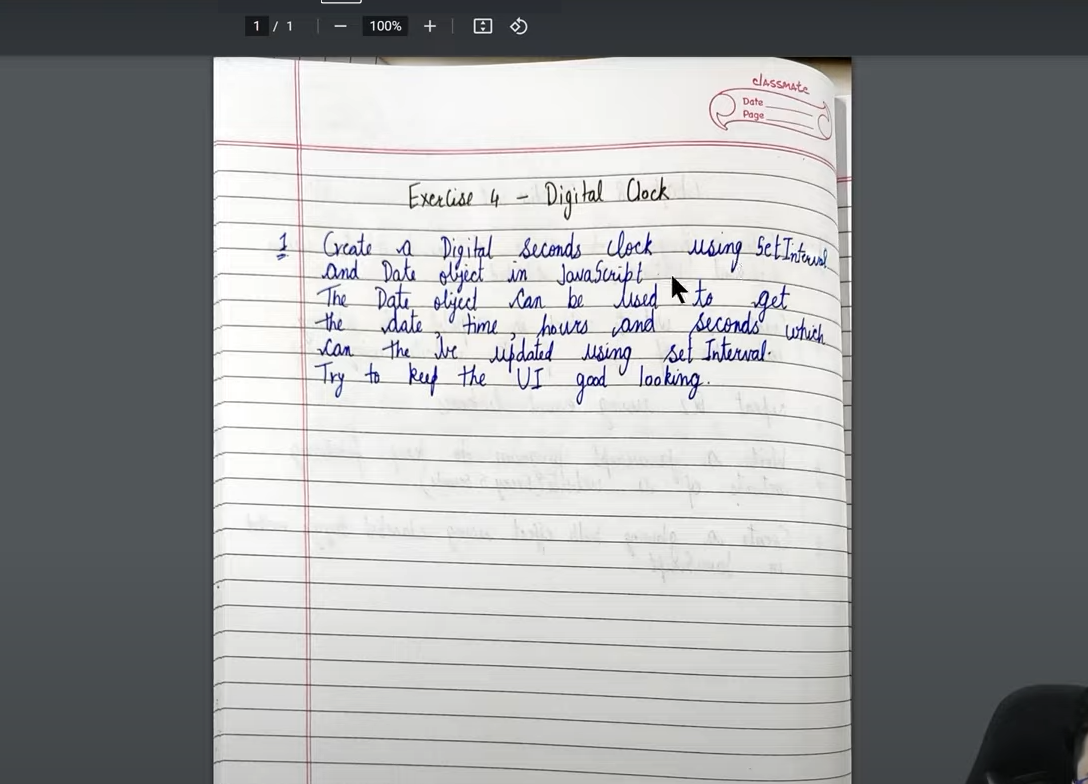 1 / 1
100%
classmate
Date
Page
Exercise 4 - Digital Clock
1 Create a Digital seconds clock using SetInterval
and Date object in JavaScript
The Date object can be used to get
the date, time, hours and seconds which
can the be updated using setInterval.
Try to keep the UI good looking.